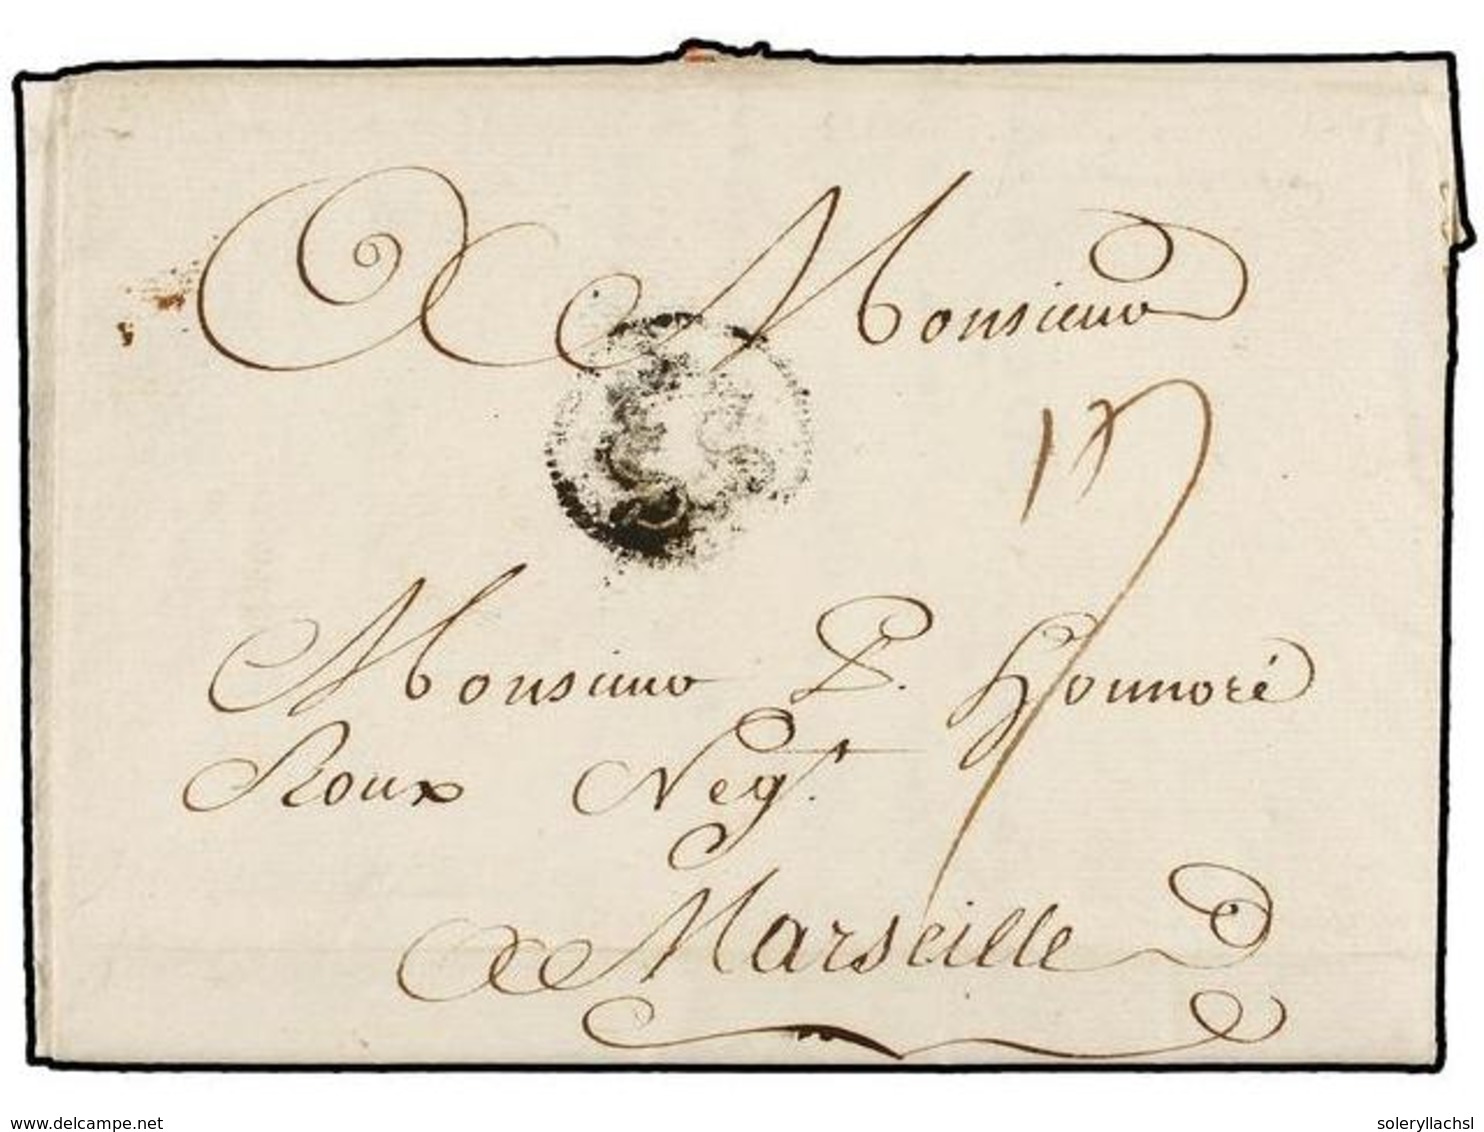 A Monsieur
17
Monsieur P. Honnoré
Roux Negt.
A Marseille
www.delcampe.net
soleryllachsl